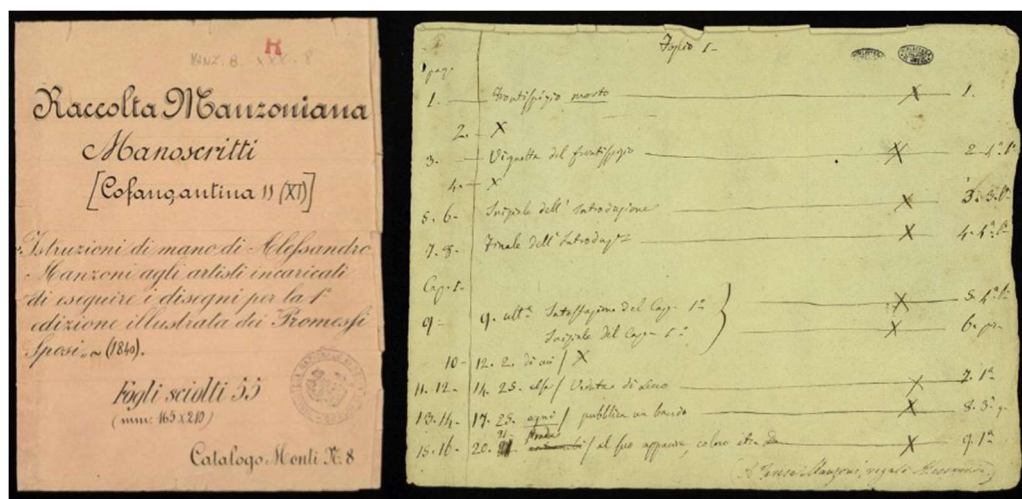 R
MANZ. B. XXX. 8
Raccolta Manzoniana
Manoscritti
[Cofanqantina 11 (XI)]
Istruzioni di mano di Alessandro
Manzoni agli artisti incaricati
di eseguire i disegni per la 1ª
edizione illustrata dei Promessi
Sposi.~(1840).
Fogli sciolti 55
(mm: 165 x 210)
Catalogo Monti N. 8
Foglio 1-
pag.
1. Frontispizio morto X 1.
2. - X
3. Vignetta del frontispizio X 2.
4. - X
5. 6- Iniziale dell' Introduzione X 3.
7. 8- Finale dell' Introduz X 4.
Cap. 1-
9- 9. ult. Intestazione del Cap. 1º X 5.
Iniziale del Cap. 1º X 6.
10- 12. 2. di un / X
11. 12- 14. 25. / Veduta di Lecco X 7. 1ª
13. 14- 17. 25. ogni / pubblica un bando X 8.
15. 16- 20. / al suo apparire, coloro X 9. 1ª
A Teresa Manzoni, regalò Alessandro